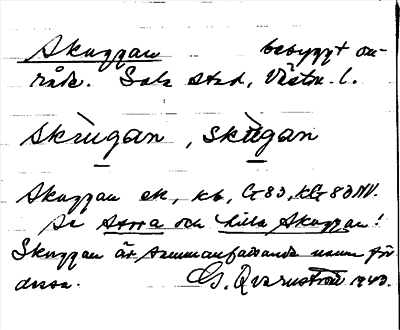 Skuggan bebyggt om-
råde. Sala stad, Västm. l.
skùgan, skùgan
Skuggan ek, kb, G 83, KG 83 NV.
Se Stora och Lilla Skuggan!
Skuggan är sammanfattande namn för
dessa. G. Qvarnström 1943.